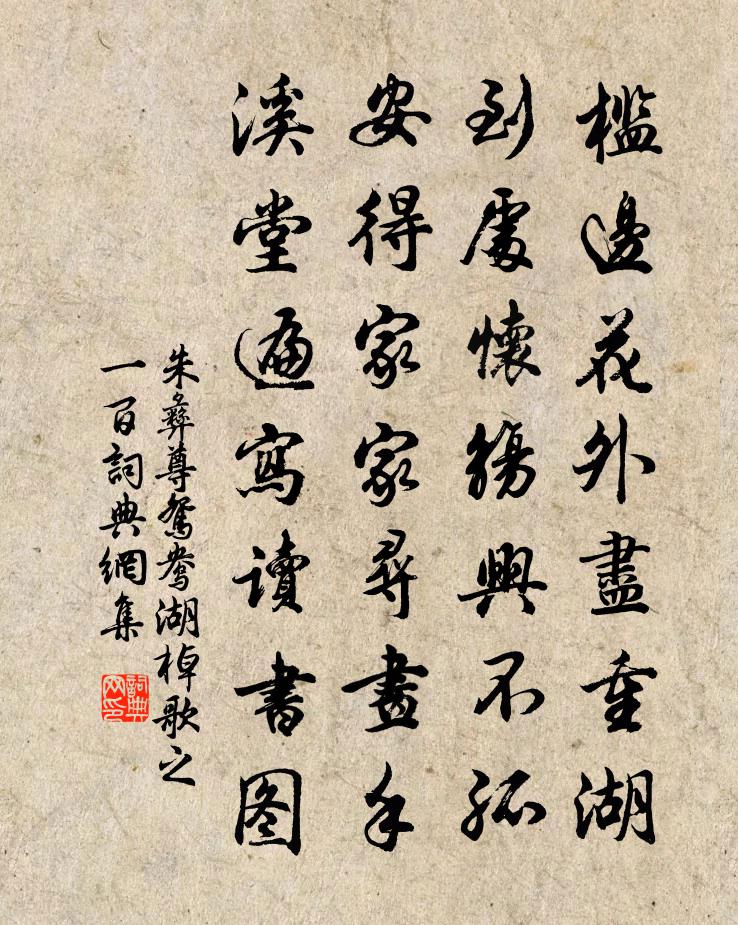 檻邊花外盡重湖
到處懷觴興不孤
安得家家尋畫手
溪堂遍寫讀書图
朱彝尊鴛鴦湖棹歌之
一百詞典網集
詞典
网印